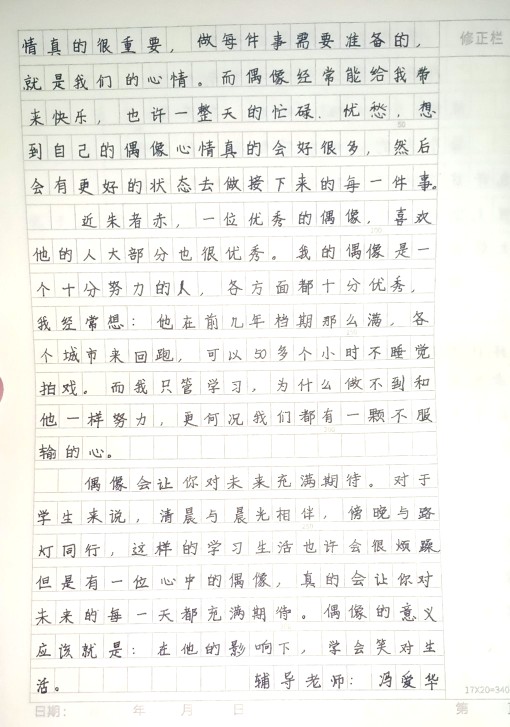 情真的很重要，做每件事需要准备的，
修正栏
就是我们的心情。而偶像经常能给我带
来快乐，也许一整天的忙碌．忧愁，想
到自己的偶像心情真的会好很多，然后
会有更好的状态去做接下来的每一件事。
近朱者赤，一位优秀的偶像，喜欢
他的人大部分也很优秀。我的偶像是一
个十分努力的人，各方面都十分优秀，
我经常想：他在前几年档期那么满，各
个城市来回跑，可以50多个小时不睡觉
拍戏。而我只管学习，为什么做不到和
他一样努力，更何况我们都有一颗不服
输的心。
偶像会让你对未来充满期待。对于
学生来说，清晨与晨光相伴，傍晚与路
灯同行，这样的学习生活也许会很烦躁
但是有一位心中的偶像，真的会让你对
未来的每一天都充满期待。偶像的意义
应该就是：在他的影响下，学会笑对生
活。 辅导老师：冯爱华
17X20=340
日期： 年 月 日 第